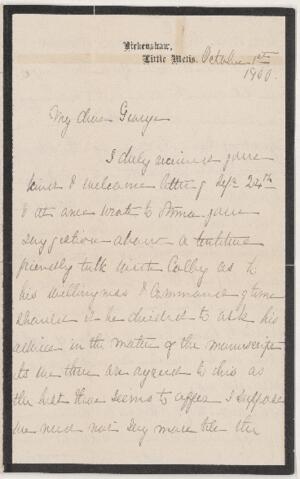 Birkenshaw,
Little Metis. October 1st
1900.
My dear George
I duly received your
kind & welcome letter of Sep 24th
& at once wrote to Anna your
suggestion about a tentative
friendly talk with Colby as to
his willingness & command of time
should it be decided to ask his
advice in the matter of the manuscript
to we three are agreed to this as
the best there seems to offer I suppose
we need not say more till the